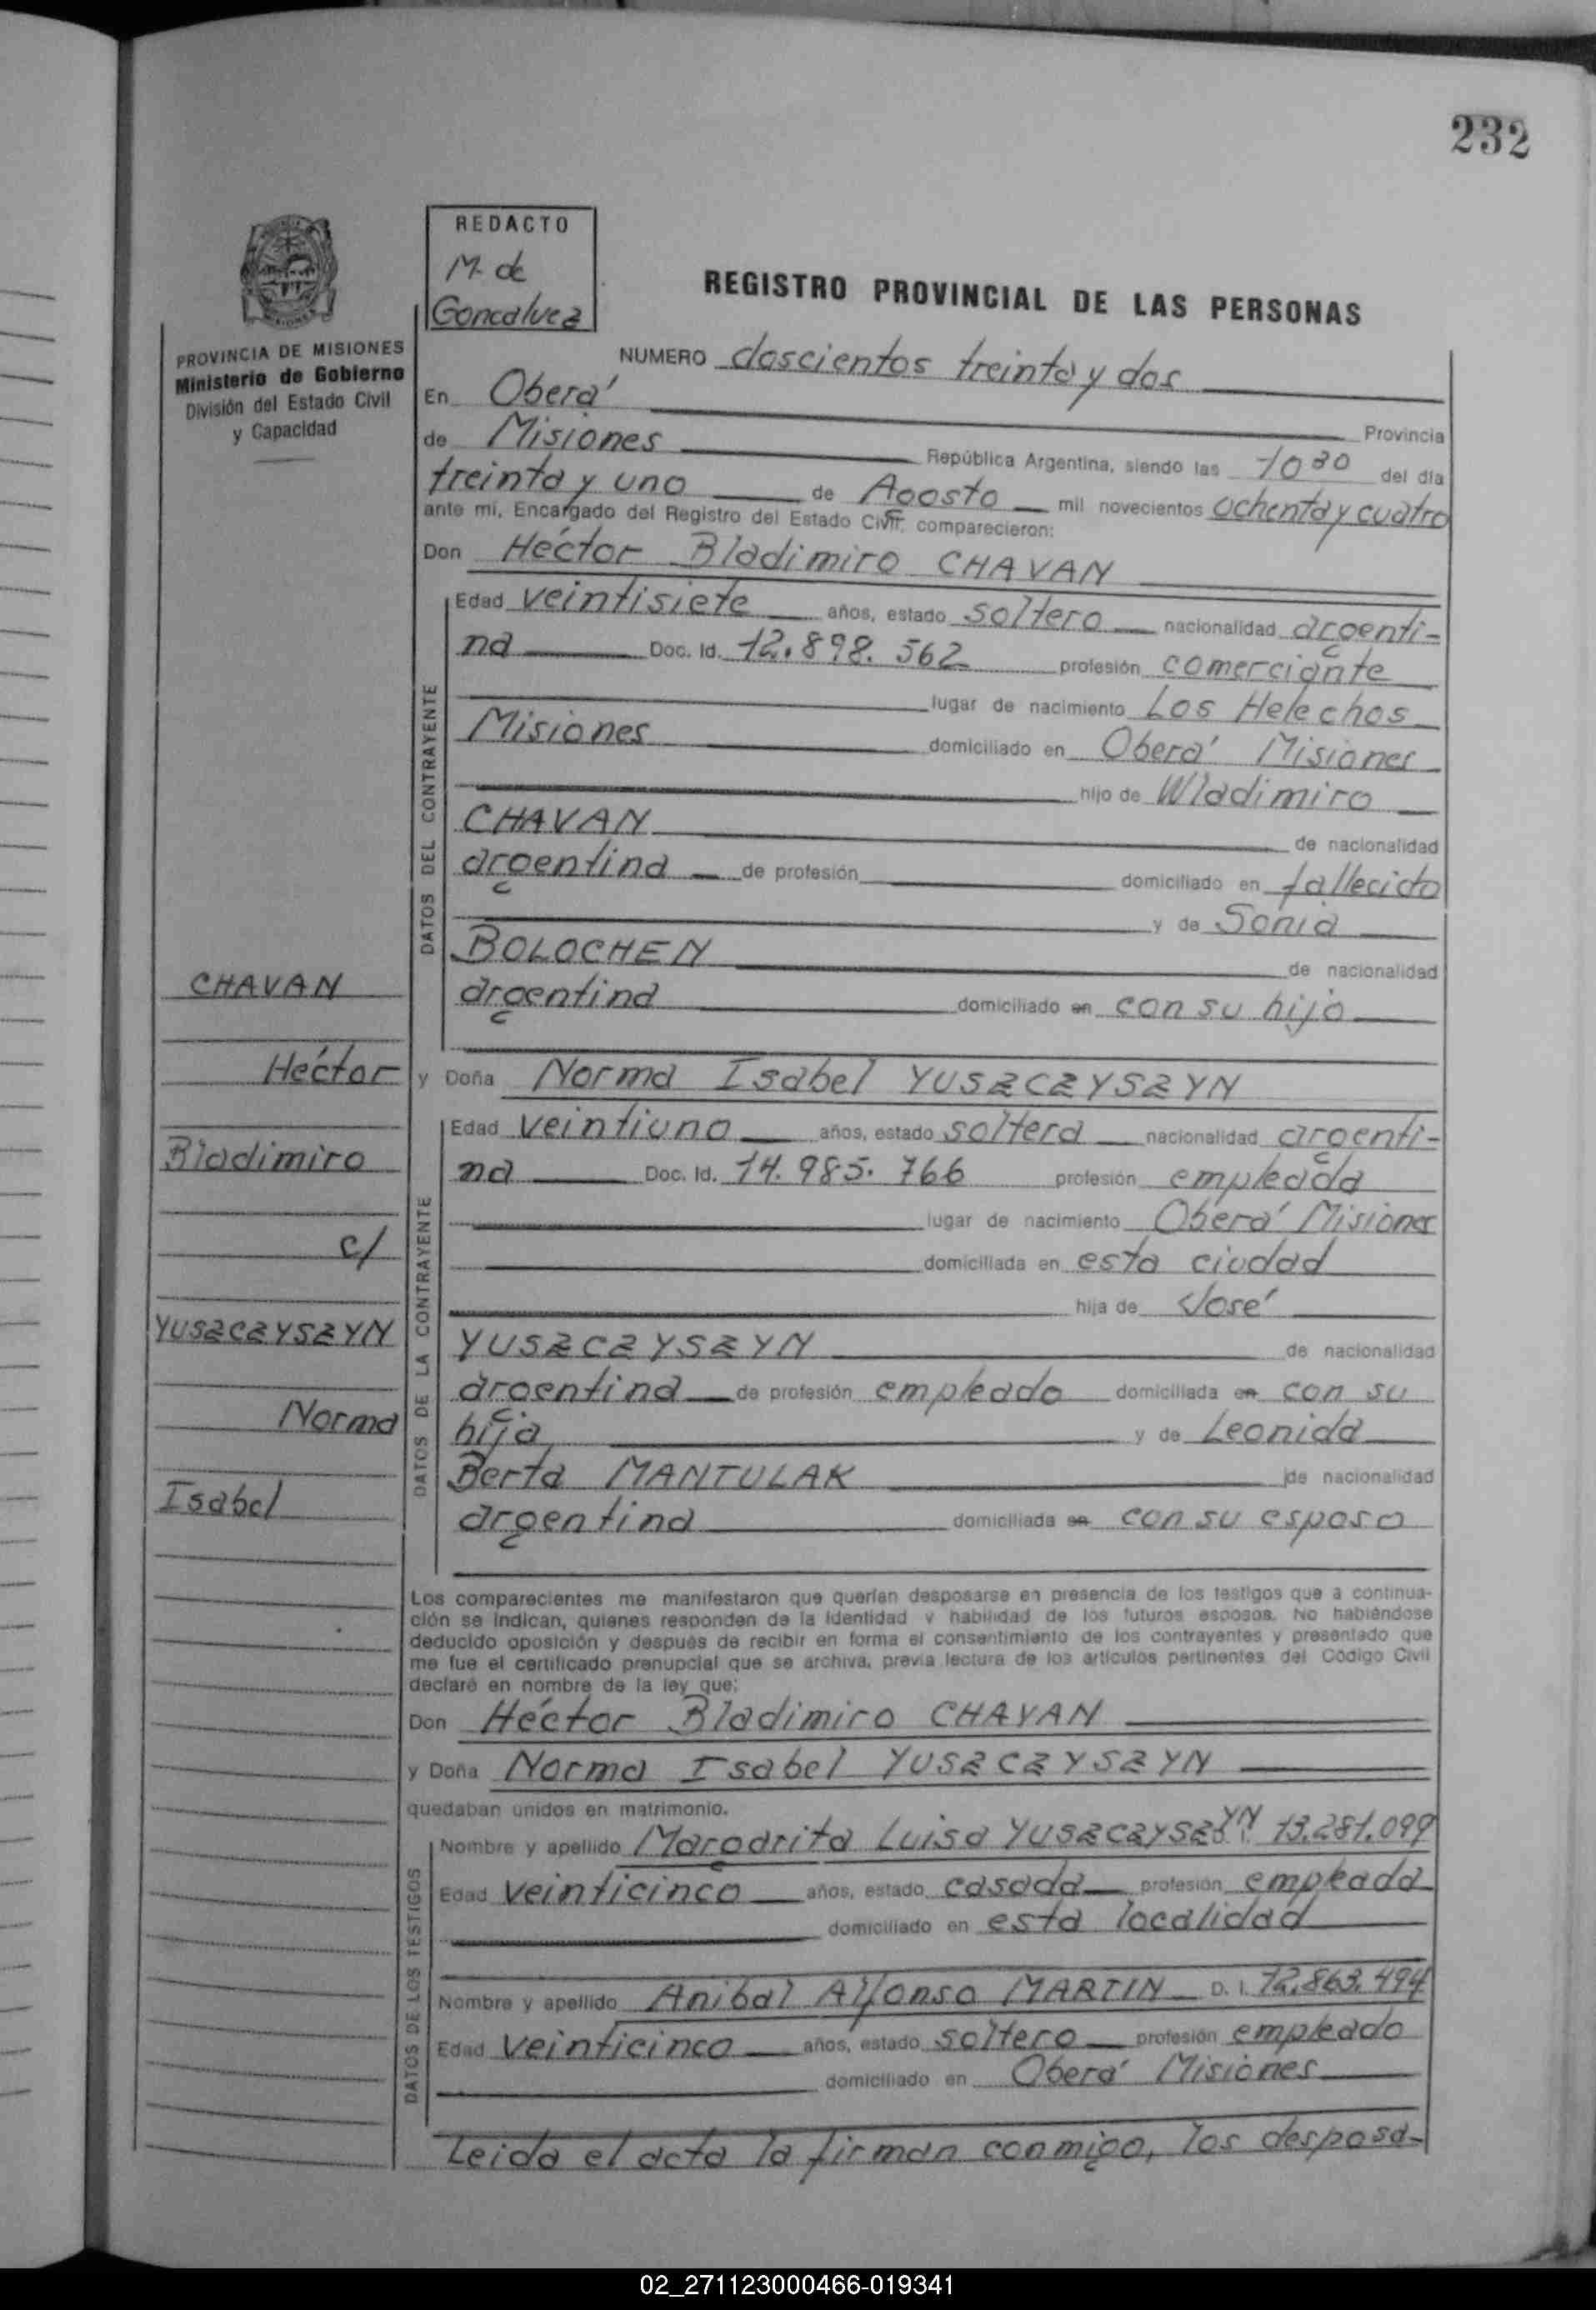 232
REDACTO
M. de
Goncalvez
REGISTRO PROVINCIAL DE LAS PERSONAS
PROVINCIA DE MISIONES
Ministerio de Gobierno
División del Estado Civil
y Capacidad
NUMERO doscientos treinta y dos
En Oberá
Provincia
de Misiones República Argentina, siendo las 10 30 del día
treinta y uno de Agosto mil novecientos ochenta y cuatro
ante mí, Encargado del Registro del Estado Civil, comparecieron:
Don Héctor Bladimiro CHAVAN
DATOS DEL CONTRAYENTE
Edad veintisiete años, estado soltero nacionalidad argenti-
na Doc. Id. 12.898.562 profesión comerciante
lugar de nacimiento Los Helechos
Misiones domiciliado en Oberá Misiones
hijo de Wladimiro
CHAVAN de nacionalidad
argentina de profesión domiciliado en fallecido
y de Sonia
BOLOCHEN de nacionalidad
argentina domiciliado en con su hijo
y Doña Norma Isabel YUSZCZYSZYN
DATOS DE LA CONTRAYENTE
Edad veintiuno años, estado soltera nacionalidad argenti-
na Doc. Id. 14.985.766 profesión empleada
lugar de nacimiento Oberá Misiones
domiciliada en esta ciudad
hija de José
YUSZCZYSZYN de nacionalidad
argentina de profesión empleado domiciliada en con su
hija y de Leonida
Berta MANTULAK de nacionalidad
argentina domiciliada en con su esposo
CHAVAN
Héctor
Bladimiro
c/
YUSZCZYSZYN
Norma
Isabel
Los comparecientes me manifestaron que querían desposarse en presencia de los testigos que a continua-
ción se indican, quienes responden de la identidad y habilidad de los futuros esposos. No habiéndose
deducido oposición y después de recibir en forma el consentimiento de los contrayentes y presentado que
me fue el certificado prenupcial que se archiva, previa lectura de los artículos pertinentes del Código Civil
declaré en nombre de la ley que:
Don Héctor Bladimiro CHAVAN
y Doña Norma Isabel YUSZCZYSZYN
quedaban unidos en matrimonio.
DATOS DE LOS TESTIGOS
Nombre y apellido Margarita Luisa YUSZCZYSZYN 13.281.099
Edad veinticinco años, estado casada profesión empleada
domiciliado en esta localidad
Nombre y apellido Anibal Alfonso MARTIN D. I. 12.863.494
Edad veinticinco años, estado soltero profesión empleado
domiciliado en Oberá Misiones
Leida el acta la firman conmigo, los desposa-
02_271123000466-019341